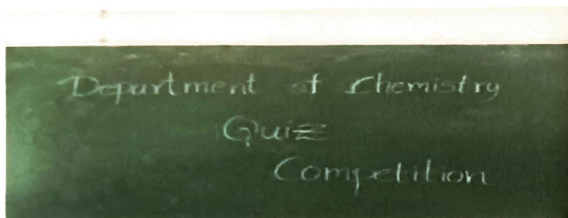 Department of Chemistry
Quiz
Competition